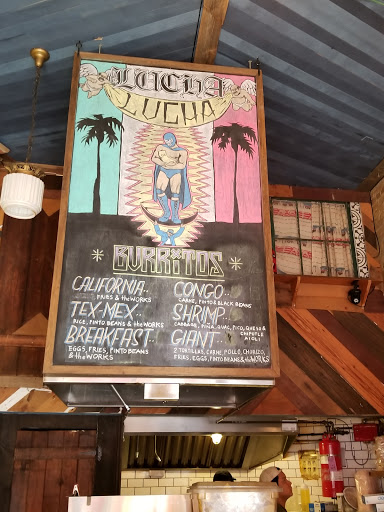 LUCHA
LUCHA
BURRITOS
CALIFORNIA..
FRIES & the WORKS
TEX-MEX..
RICE, PINTO BEANS & the WORKS
BREAKFAST..
EGGS, FRIES, PINTO BEANS
& the WORKS
CONGO..
CARNE, PINTO & BLACK BEANS
SHRIMP..
CABBAGE, PIÑA, GUAC, PICO, QUESO &
CHIPOTLE
AIOLI
GIANT..
2 TORTILLAS, CARNE, POLLO, CHORIZO,
FRIES, EGGS, PINTO BEANS & the WORKS